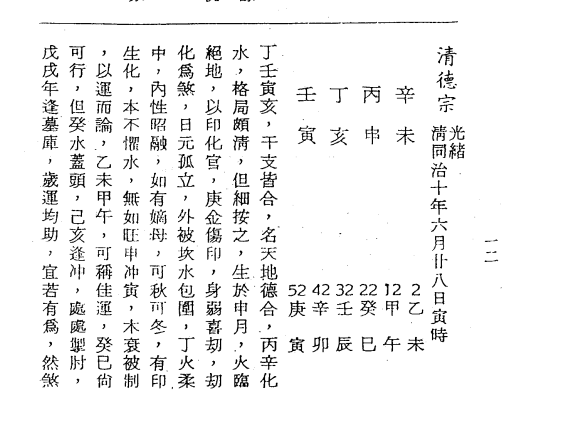 清德宗 光緒
清同治十年六月廿八日寅時
一二
辛未
丙申
丁亥
壬寅
2乙未
12甲午
22癸巳
32壬辰
42辛卯
52庚寅
丁壬寅亥，干支皆合，名天地德合，丙辛化
水，格局頗清，但細按之，生於申月，火臨
絕地，以印化官，庚金傷印，身弱喜刧，刧
化爲煞，日元孤立，外被坎水包圍，丁火柔
中，內性昭融，如有嫡母，可秋可冬，有印
生化，本不懼水，無如旺申冲寅，木衰被制
，以運而論，乙未甲午，可稱佳運，癸巳尙
可行，但癸水蓋頭，己亥逢冲，處處掣肘，
戊戌年逢墓庫，歲運均助，宜若有爲，然煞